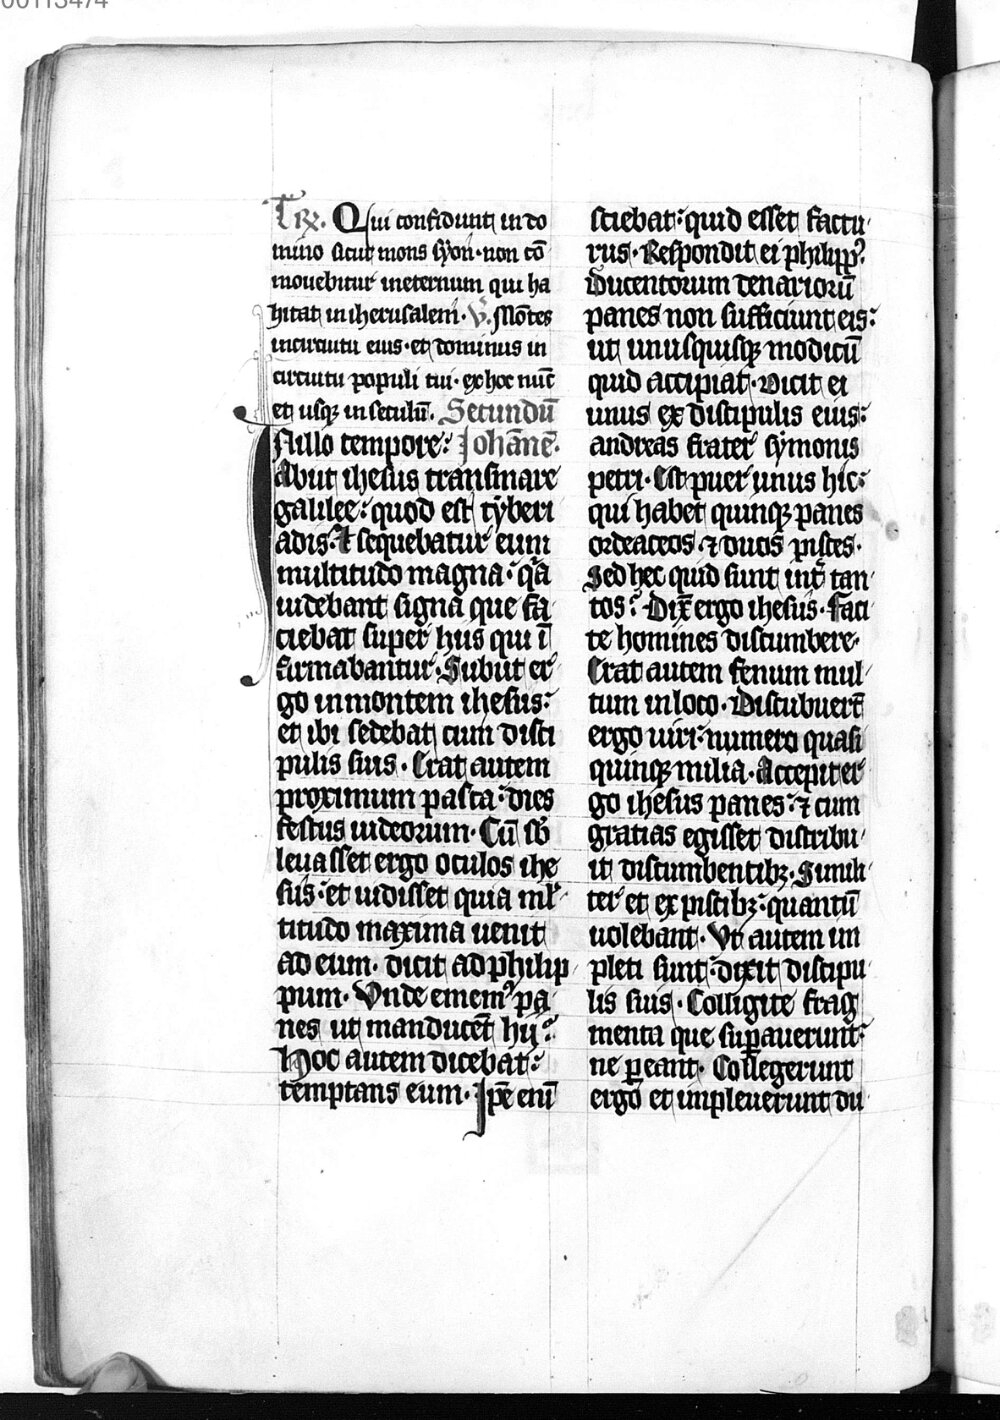 00113474
Tr̄. Qui confidunt in do
mino sicut mons syon· non cō
mouebitur ineternum qui ha
bitat in iherusalem· V̄. Mōtes
incircuitu eius· et dominus in
circuitu populi tui· ex hoc nūc
et usq; in seculū. Secundū
In illo tempore: Johānē·
Abiit ihesus transmare
galilee: quod est tyberi
adis. Et sequebatur eum
multitudo magna· qīa
uidebant signa que fa
ciebat super hiis qui ī
firmabantur· Subiit er
go in montem ihesus:
et ibi sedebat cum disci
pulis suis· Erat autem
proximum pasca: dies
festus iudeorum· Cū sb
leuasset ergo oculos ihe
sus: et uidisset quia ml
titudo maxima uenit
ad eum· dicit ad philip
pum· Vnde ememꝰ pa
nes ut manducēt hij?
Hoc autem dicebat:
temptans eum· Ip̄e enī
sciebat: quid esset factu
rus· Respondit ei philipp̄ꝰ
Ducentorum denariorū
panes non sufficiunt eis:
ut unusquisq; modicū
quid accipiat· Dicit ei
unus ex discipulis eius:
andreas frater symonis
petri· Est puer unus hic:
qui habet quinq; panes
ordeaceos ⁊ duos pisces·
Sed hec quid sunt int̄ tan
tos? Dix̄ ergo ihesus· Faci
te homines discumbere·
Erat autem fenum mul
tum in loco· Discubuerūt
ergo uiri: numero quasi
quinq; milia· Accepit er
go ihesus panes: ⁊ cum
gratias egisset distribu
it discumbentib;· Simili
ter et ex piscib;: quantū
uolebant· Vt autem im
pleti sunt: dixit discipu
lis suis· Colligite frag
menta que sup̄auerunt:
ne ꝑeant· Collegerunt
ergo et impleuerunt du